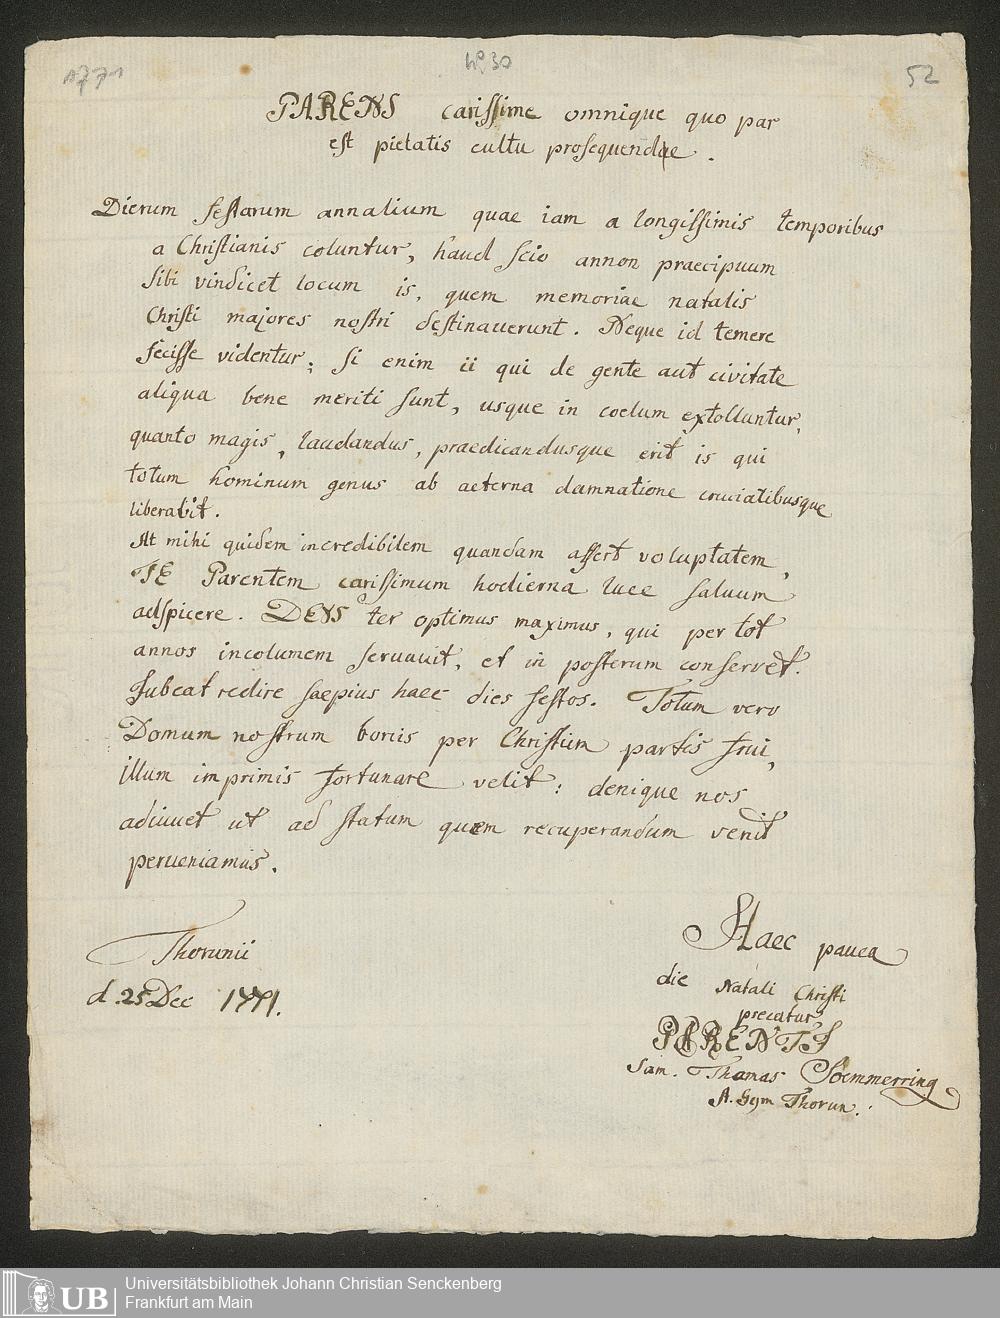 1771
No 30
52
PARENS carissime omnique quo par
est pietatis cultu prosequendae.
Dierum festorum annalium quae iam a longissimis temporibus
a Christianis coluntur, haud scio annon praecipuum
sibi vindicet locum is, quem memoriae natalis
Christi majores nostri destinaverunt. Neque id temere
fecisse videntur; si enim ii qui de gente aut civitate
aliqua bene meriti sunt, usque in coelum extolluntur,
quanto magis, laudandus, praedicandusque erit is qui
totum hominum genus ab aeterna damnatione cruciatibusque
liberabit.
At mihi quidem incredibilem quandam affert voluptatem,
TE Parentem carissimum hodierna luce saluum
adspicere. DEUS ter optimus maximus, qui per tot
annos incolumem seruauit, et in posterum conservet.
Jubeat redire saepius haec dies festos. Totum vero
Domum nostrum bonis per Christum partis frui,
illum imprimis fortunare velit: denique nos
adiuuet ut ad statum quem recuperandum venit
perueniamus.
Thorunii
d. 25 Dec 1771.
Haec pauca
die Natali Christi
precatur
PARENTJ
Sam. Thomas Soemmerring
A. Gym Thorun.
Universitätsbibliothek Johann Christian Senckenberg
Frankfurt am Main
UB